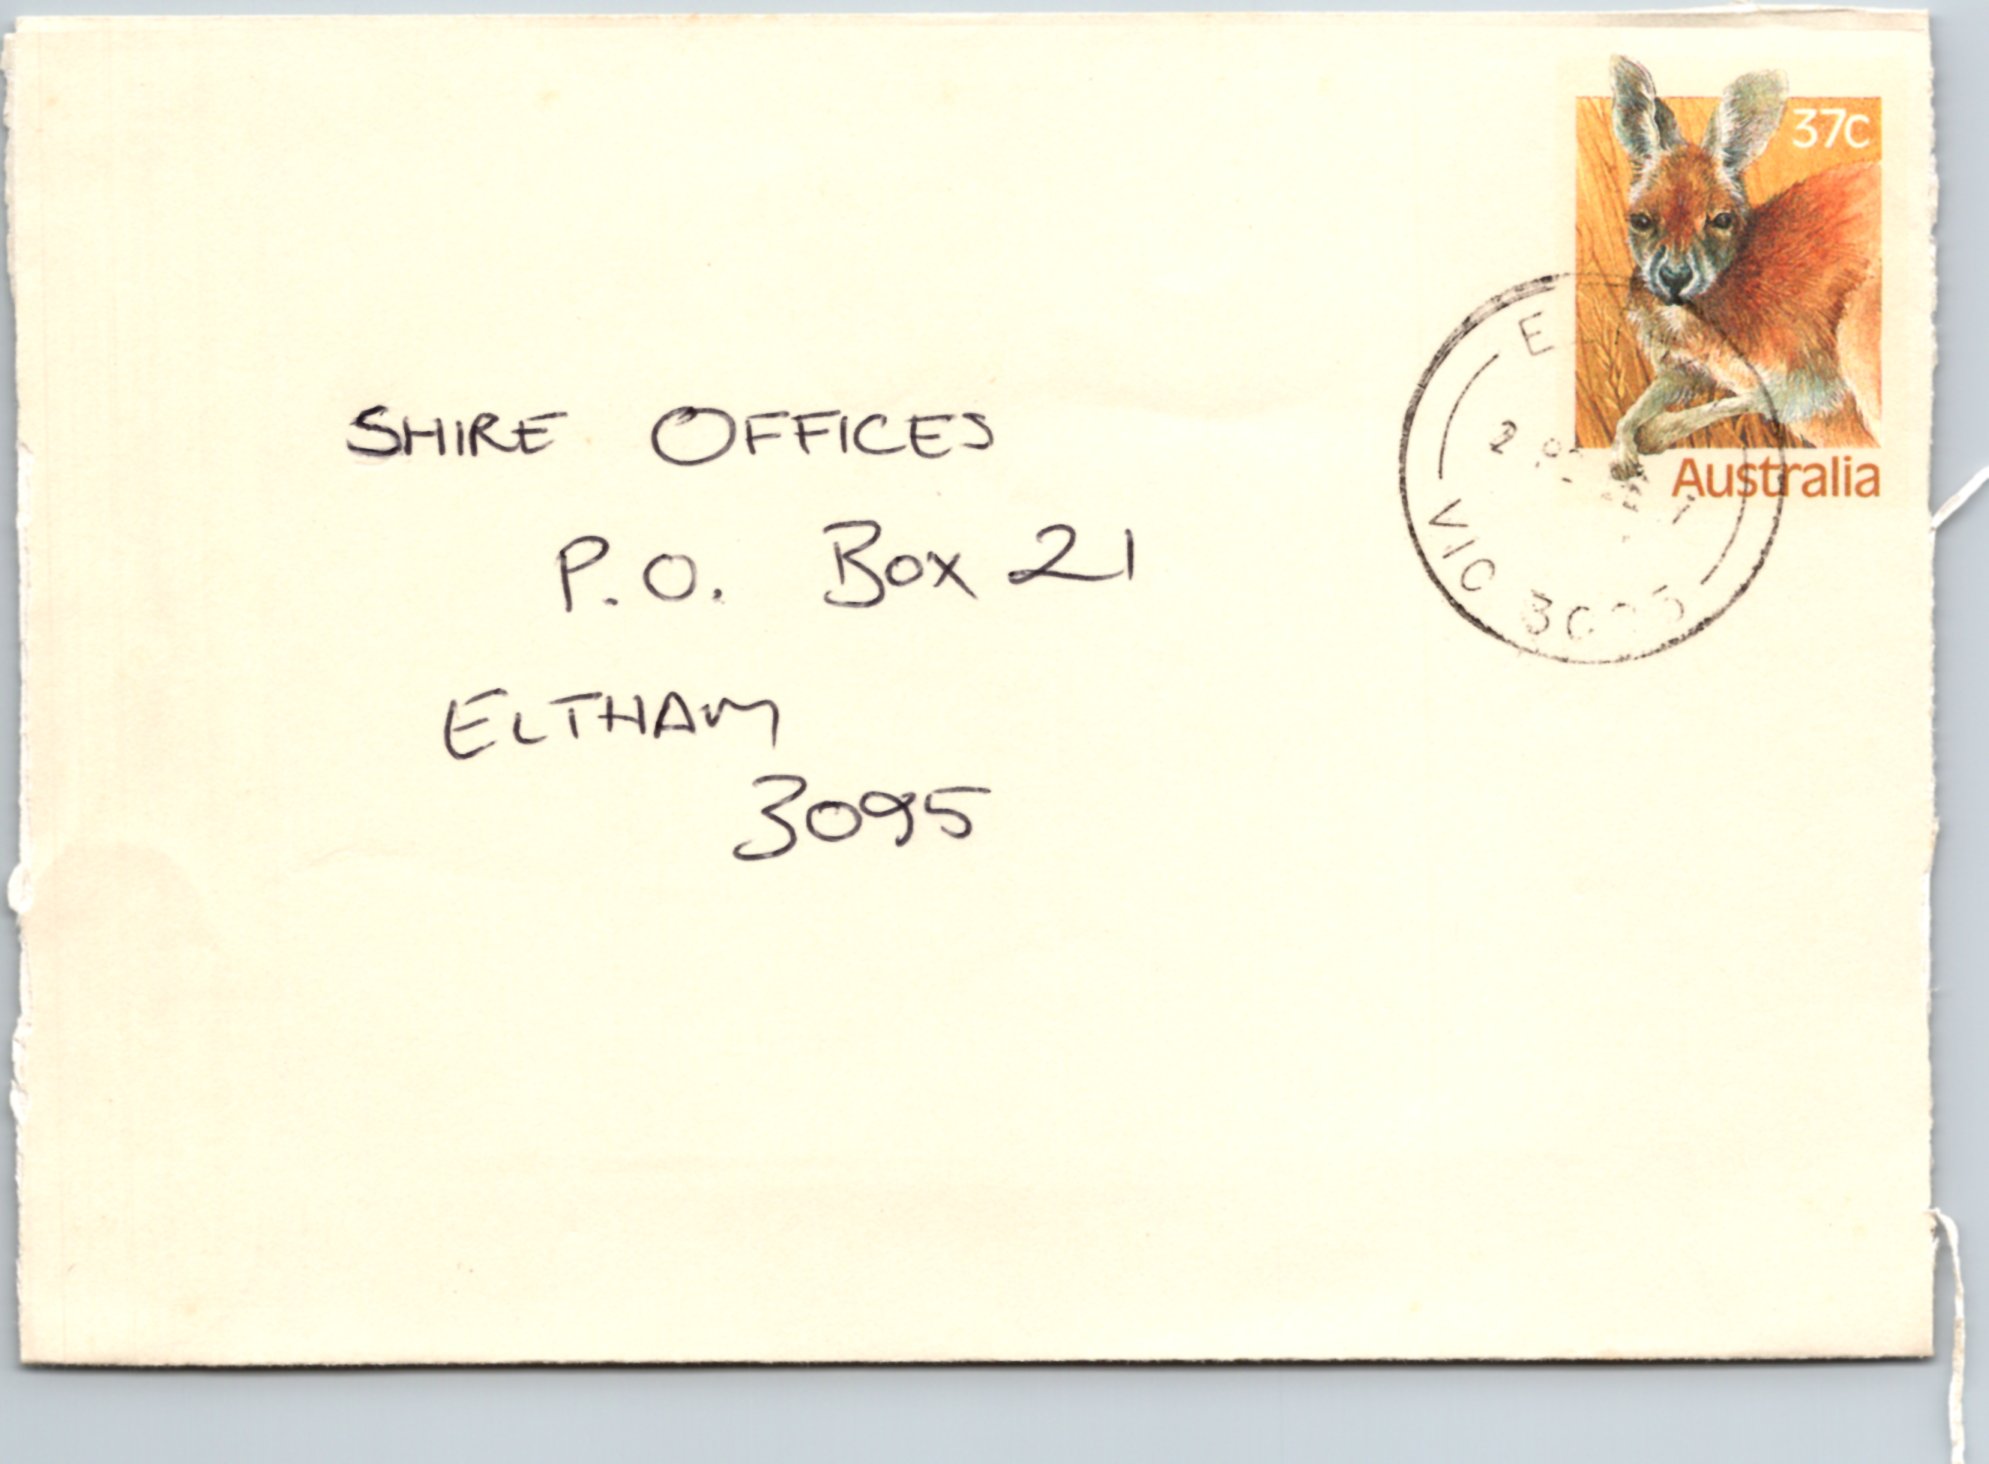 37c
Australia
VIC
SHIRE OFFICES
P.O. Box 21
ELTHAM
3095